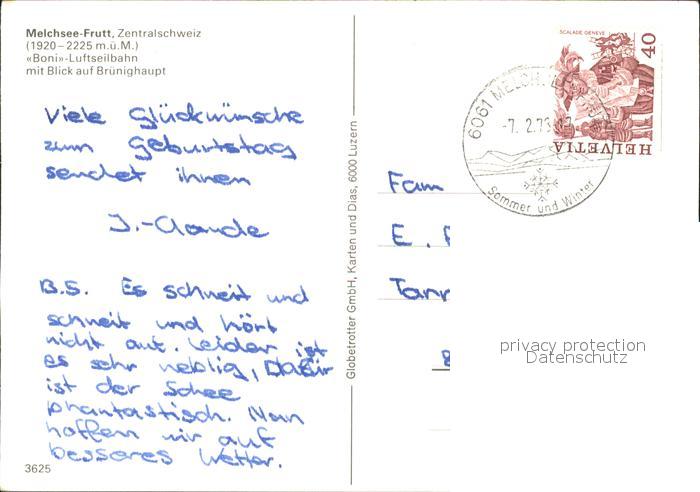 Melchsee-Frutt, Zentralschweiz
(1920–2225 m.ü.M.)
«Boni»-Luftseilbahn
mit Blick auf Brünighaupt
Viele Glückwünsche
zum Geburtstag
sendet ihnen
J.-Claude
B.S. Es schneit und
schneit und hört
nicht auf. Leider ist
es sehr neblig, Dafür
ist der Schee
phantastisch. Nun
hoffen wir auf
besseres Wetter.
3625
Globetrotter GmbH, Karten und Dias, 6000 Luzern
SCALADE GENEVE
40
HELVETIA
6061 MELCH
-7. 2.79
Sommer und Winter
Fam
E.
Tann
privacy protection
Datenschutz